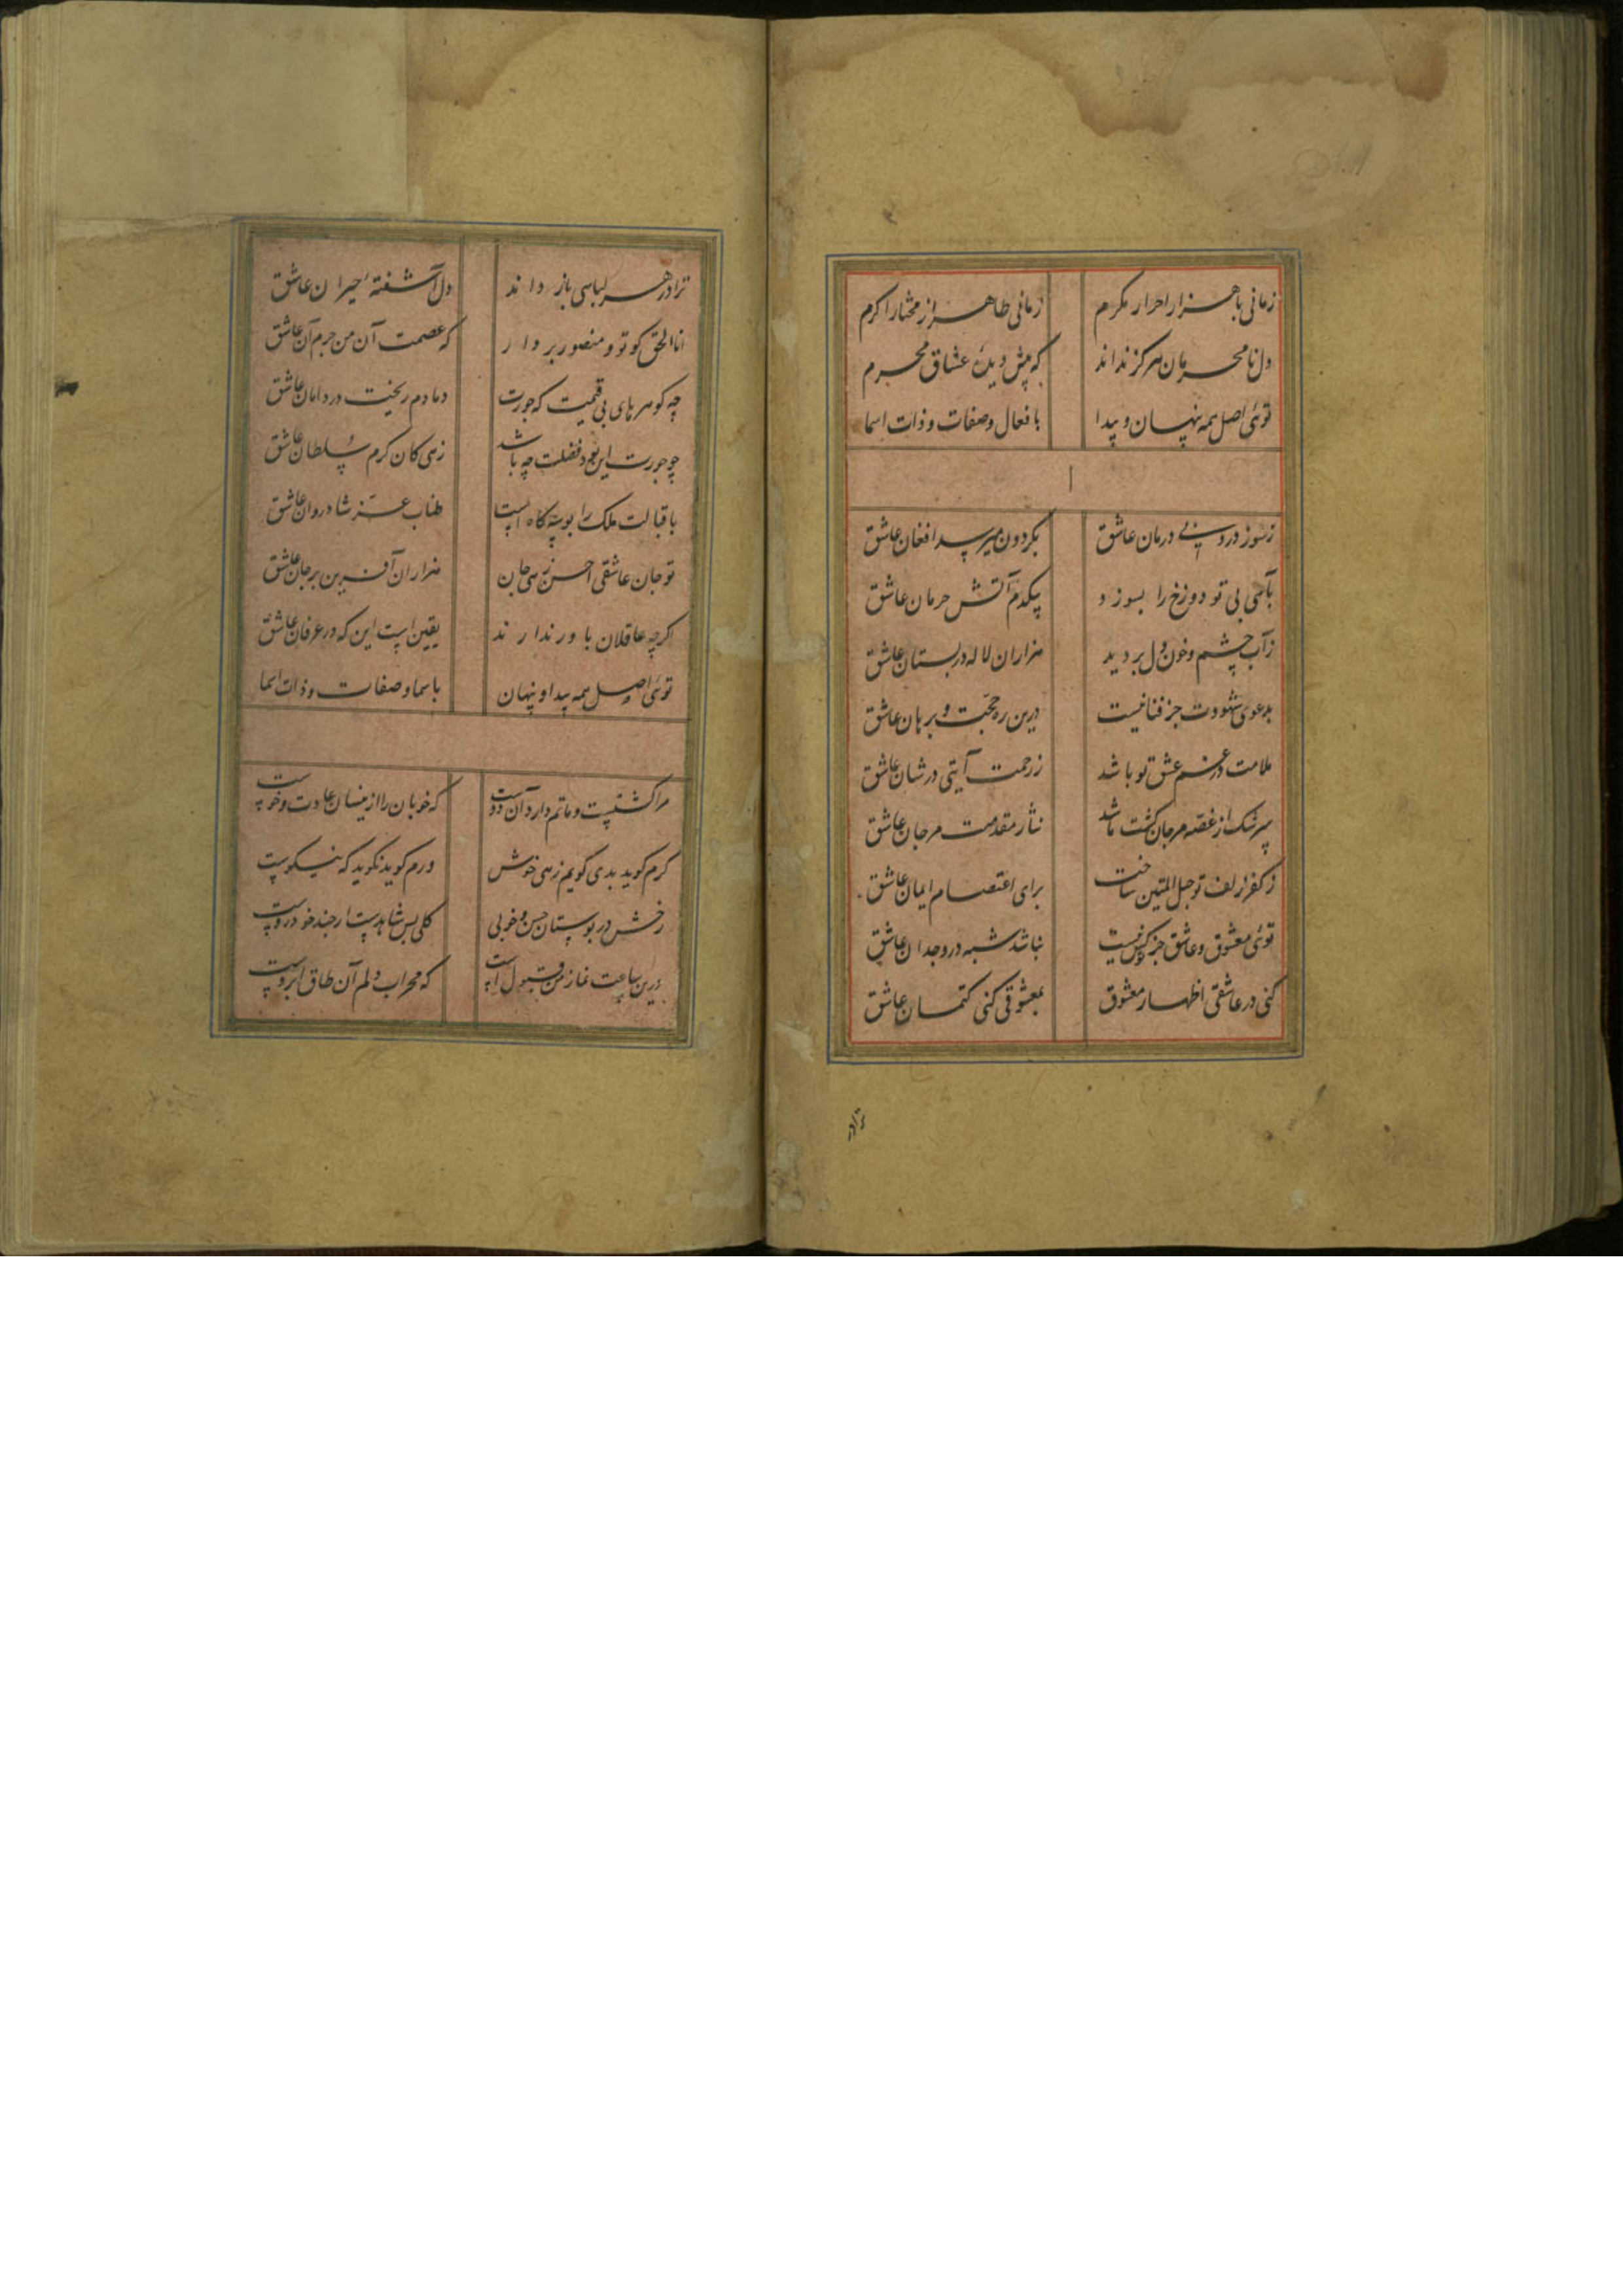 زمانی با هزار احرار مکرم زمانی ظاهر از مختار اکرم
دل نامحرمان هرگز نداند که پیش دیدهٔ عشاق محرم
توئی اصل همه پنهان و پیدا بافعال و صفات و ذات اسما
ز سوز درد بی درمان عاشق بگردون میرسد افغان عاشق
بآهی بی تو دوزخ را بسوزد یکدم آتش حرمان عاشق
ز آب چشم و خون دل بر دمید هزاران لاله در بستان عاشق
بدعوی شهودت جز فنا نیست درین ره حجت و برهان عاشق
ملامت در غم عشق تو باشد ز رحمت آیتی در شان عاشق
سرشک از غصه مرجان گشت تا شد نثار مقدمت مرجان عاشق
ز کفر زلف تو حبل المتین ساخت برای اعتصام ایمان عاشق
توئی معشوق و عاشق جز تو کس نیست نباشد شبه در وجدان عاشق
کنی در عاشقی اظهار معشوق بمعشوقی کنی کتمان عاشق
ترا در
ترا در هر لباسی باز داند دل آشفتهٔ حیران عاشق
انا الحق گو تو و منصور بر دار که عصمت آن من جرم آن عاشق
چه گوهرهای بی قیمت که جورت دمادم ریخت در دامان عاشق
چو جورت این بود فضلت چه باشد زهی کان کرم سلطان عاشق
باقبالت ملک را بوسه گاه است طناب عز شادروان عاشق
تو جان عاشقی احسن زهی جان هزاران آفرین بر جان عاشق
اگرچه عاقلان باور ندارند یقین است این که در عرفان عاشق
توئی اصل همه پیدا و پنهان باسما و صفات و ذات اسما
مرا کشتست و ماتم دارد آن دوست که خوبان را ازینسان عادت و خوست
گرم گوید بدی گویم زهی خوش ورم گوید نگوید که نیکوست
رخش در بوستان حسن و خوبی گلی بس شاهدست ار چند خودروست
درین ساعت نماز من قبول است که محراب دلم آن طاق ابروست